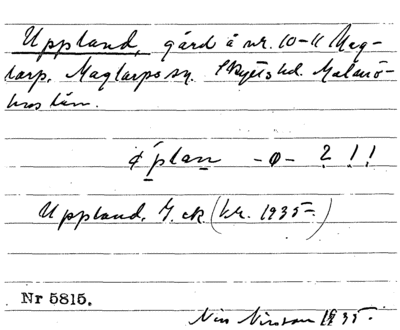 Uppland, gård å nr. 10-11 Mag-
larp. Maglarps sn. Skytts hd. Malmö-
hus län.
¢'plan -o- ? !!
Uppland, J. ek (kr. 1935-)
Nr 5815.
Nils Nilsson 1935.